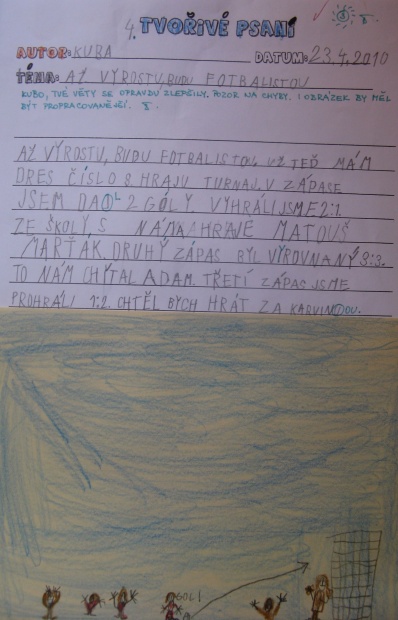 4. TVOŘIVÉ PSANÍ
AUTOR: KUBA DATUM: 23.4.2010
TÉMA: AŽ VYROSTU, BUDU FOTBALISTOU
KUBO, TVÉ VĚTY SE OPRAVDU ZLEPŠILY. POZOR NA CHYBY. I OBRÁZEK BY MĚL
BÝT PROPRACOVANĚJŠÍ.
AŽ VYROSTU, BUDU FOTBALISTOU. UŽ TEĎ MÁM
DRES ČÍSLO 8. HRAJU TURNAJ. V ZÁPASE
JSEM DAL 2 GÓLY. VYHRÁLI JSME 2:1.
ZE ŠKOLY, S NÁMA HRAJE MATOUŠ
MARŤAK. DRUHÝ ZÁPAS BYL VYROVNANÝ 3:3.
TO NÁM CHYTAL ADAM. TŘETÍ ZÁPAS JSME
PROHRÁLI 1:2. CHTĚL BYCH HRÁT ZA KARVINOU.
GÓL!